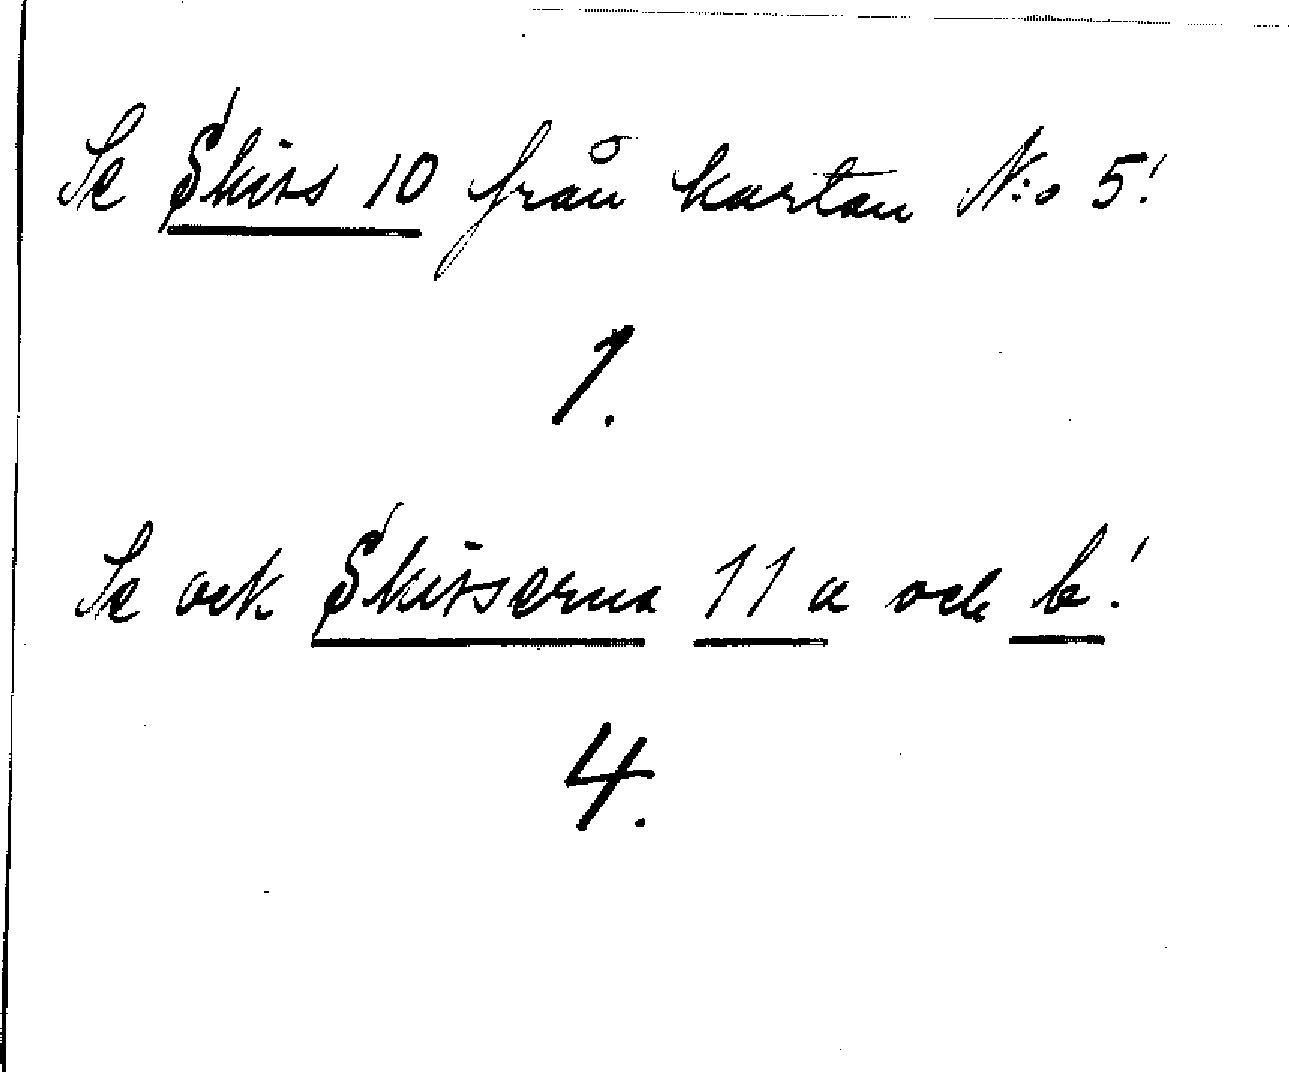 Se Skiss 10 från kartan N:o 5!
1.
Se ock Skisserna 11 a och b!
4.